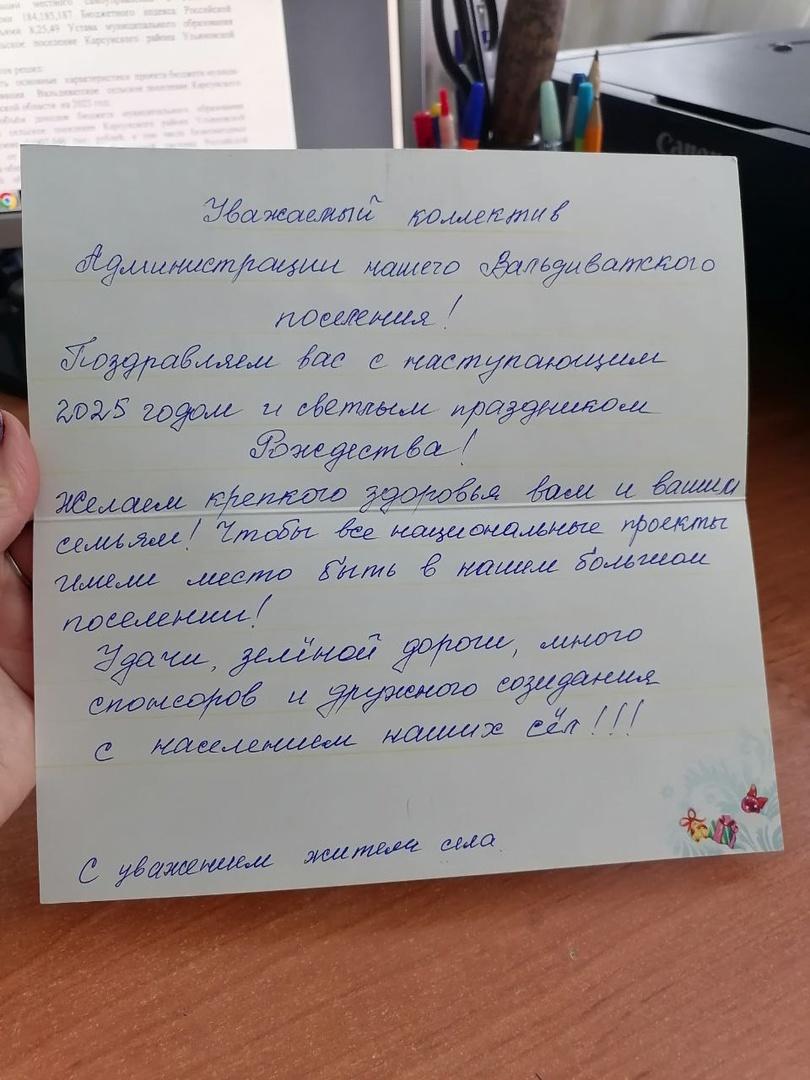 184,185,187 Бюджетного кодекса Российской
8,25,49 Устава муниципального образования
сельское поселение Карсунского района Ульяновской
основные характеристики проекта бюджета
Вальдиватское сельское поселение Карсунского
области на 2025 год
доходов бюджета муниципального образования
сельское поселение Карсунского района Ульяновской
Canon
Уважаемый коллектив
Администрации нашего Вальдиватского
поселения!
Поздравляем вас с наступающим
2025 годом и светлым праздником
Рождества!
Желаем крепкого здоровья вам и вашим
семьям! Чтобы все национальные проекты
имели место быть в нашем большом
поселении!
Удачи, зелёной дороги, много
спонсоров и дружного созидания
с населением наших сёл!!!
С уважением жители села